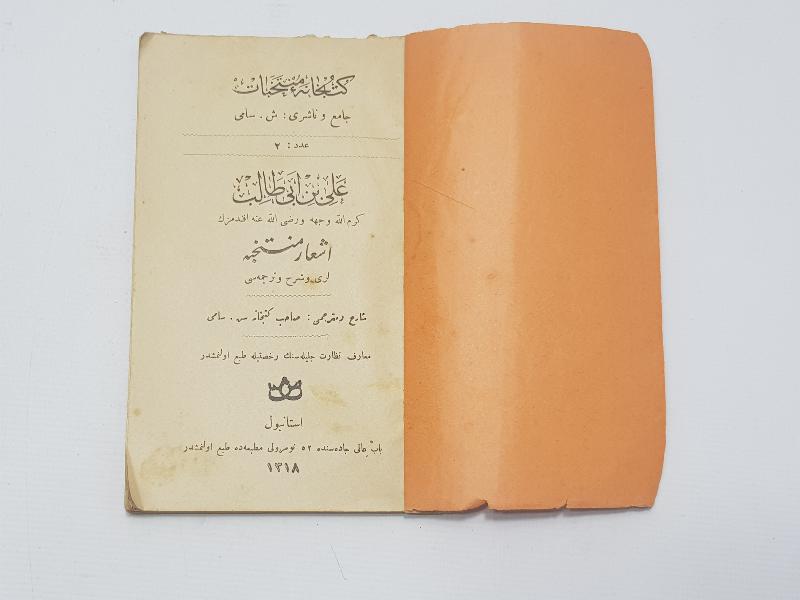 كتبخانهٔ منتخبات
جامع و ناشری : ش . سامی
عدد : ٢
علی بن ابی طالب
كرم الله وجهه ورضی الله عنه افندمزك
اشعار منتخبه
لری وشرح وترجمه‌سی
شارح ومترجمی : صاحب كتبخانه ش . سامی
معارف نظارت جلیله‌سنك رخصتیله طبع اولنمشدر
استانبول
باب عالی جاده‌سنده ٥٢ نومرولی مطبعه‌ده طبع اولنمشدر
١٣١٨